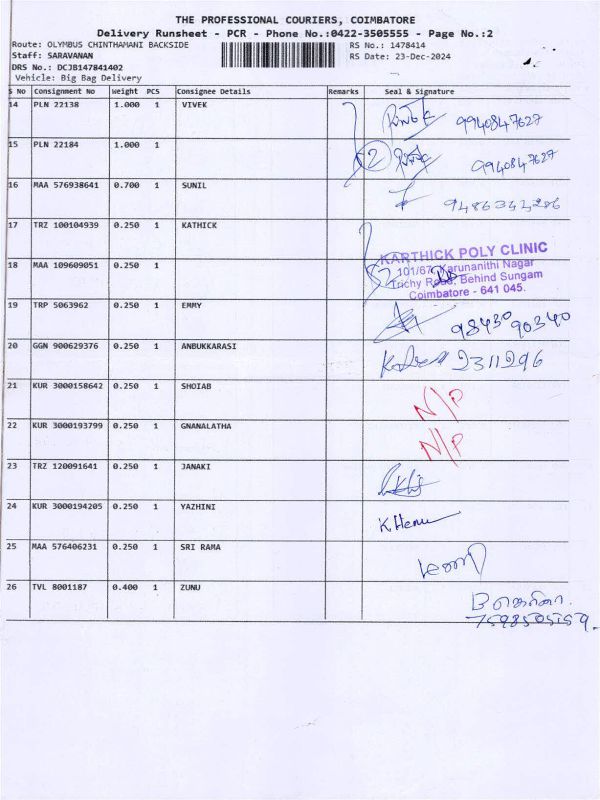 THE PROFESSIONAL COURIERS, COIMBATORE
Delivery Runsheet - PCR - Phone No.:0422-3505555 - Page No.:2
Route: OLYMBUS CHINTHAMANI BACKSIDE RS No.: 1478414
Staff: SARAVANAN RS Date: 23-Dec-2024
DRS No.: DCJB147841402
Vehicle: Big Bag Delivery
S No Consignment No Weight PCS Consignee Details Remarks Seal & Signature
14 PLN 22138 1.000 1 VIVEK 9940847627
15 PLN 22184 1.000 1 2 9940847627
16 MAA 576938641 0.700 1 SUNIL
17 TRZ 100104939 0.250 1 KATHICK
KARTHICK POLY CLINIC
18 MAA 109609051 0.250 1 2 101/67, Karunanithi Nagar
Trichy Road, Behind Sungam
Coimbatore - 641 045.
19 TRP 5063962 0.250 1 EMMY 98430 90340
20 GGN 900629376 0.250 1 ANBUKKARASI 2311296
21 KUR 3000158642 0.250 1 SHOIAB N/P
22 KUR 3000193799 0.250 1 GNANALATHA N/P
23 TRZ 120091641 0.250 1 JANAKI
24 KUR 3000194205 0.250 1 YAZHINI K Hemu
25 MAA 576406231 0.250 1 SRI RAMA
26 TVL 8001187 0.400 1 ZUNU